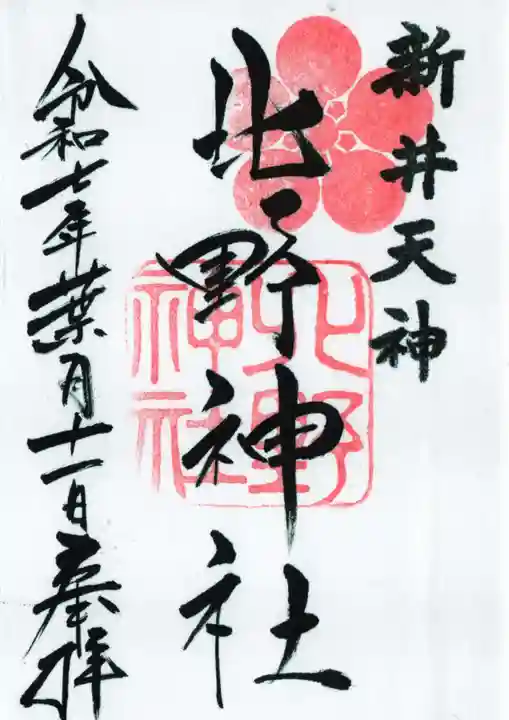 新井天神
北野神社
北野神社
令和七年葉月十一日奉拝